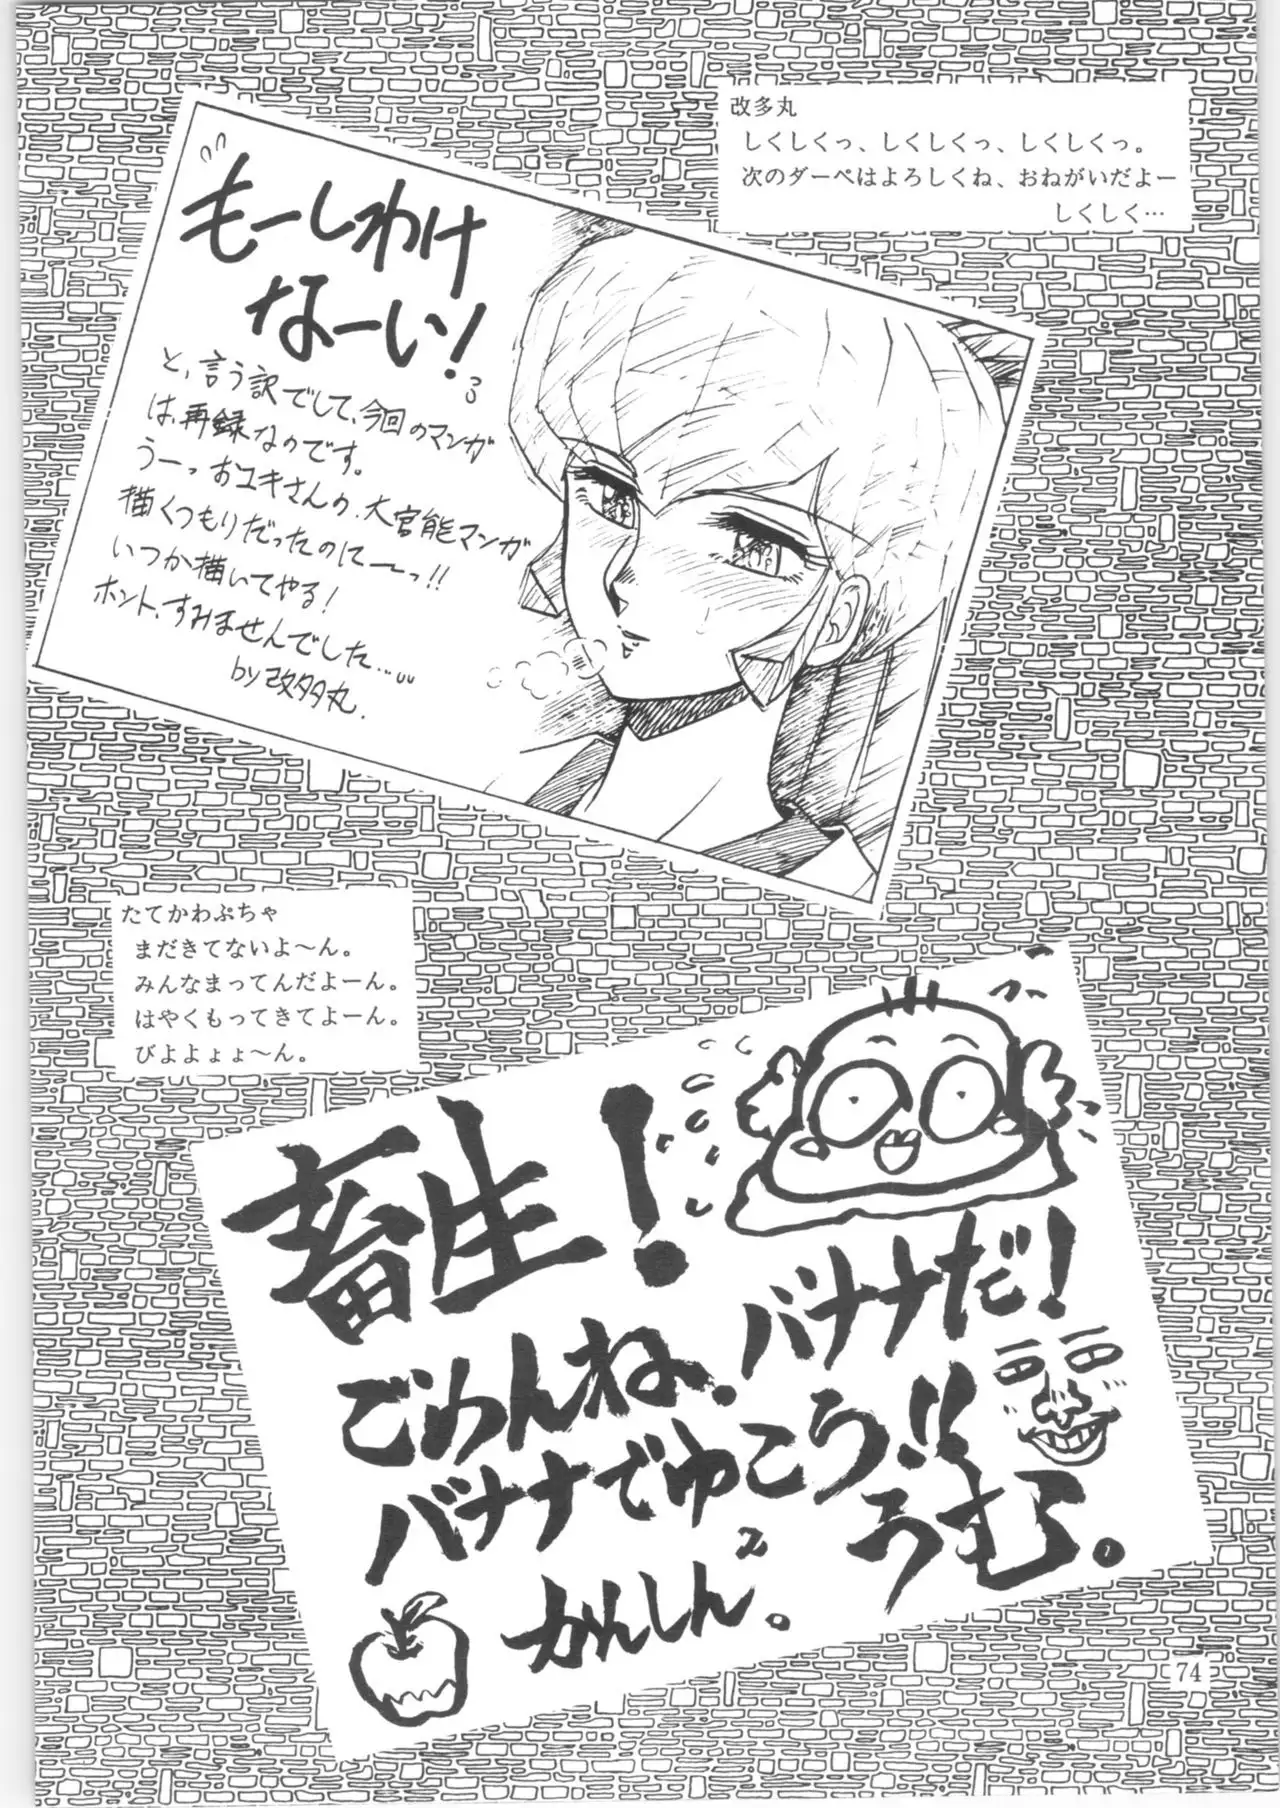 改多丸
しくしくっ、しくしくっ、しくしくっ。
次のダーペはよろしくね、おねがいだよー
しくしく…
もーしわけ
なーい！
と、言う訳でして、今回のマンガ
は、再録なのです。
うーっおユキさんの、大官能マンガ
描くつもりだったのにーーっ!!
いつか描いてやる！
ホント、すみませんでした…
by 改多丸.
たてかわぷちゃ
まだきてないよ〜ん。
みんなまってんだよーん。
はやくもってきてよーん。
びよよょょ〜ん。
畜生！
ごめんね、バナナだ！
バナナでゆこう!!
うむ。
かんしん²。
74